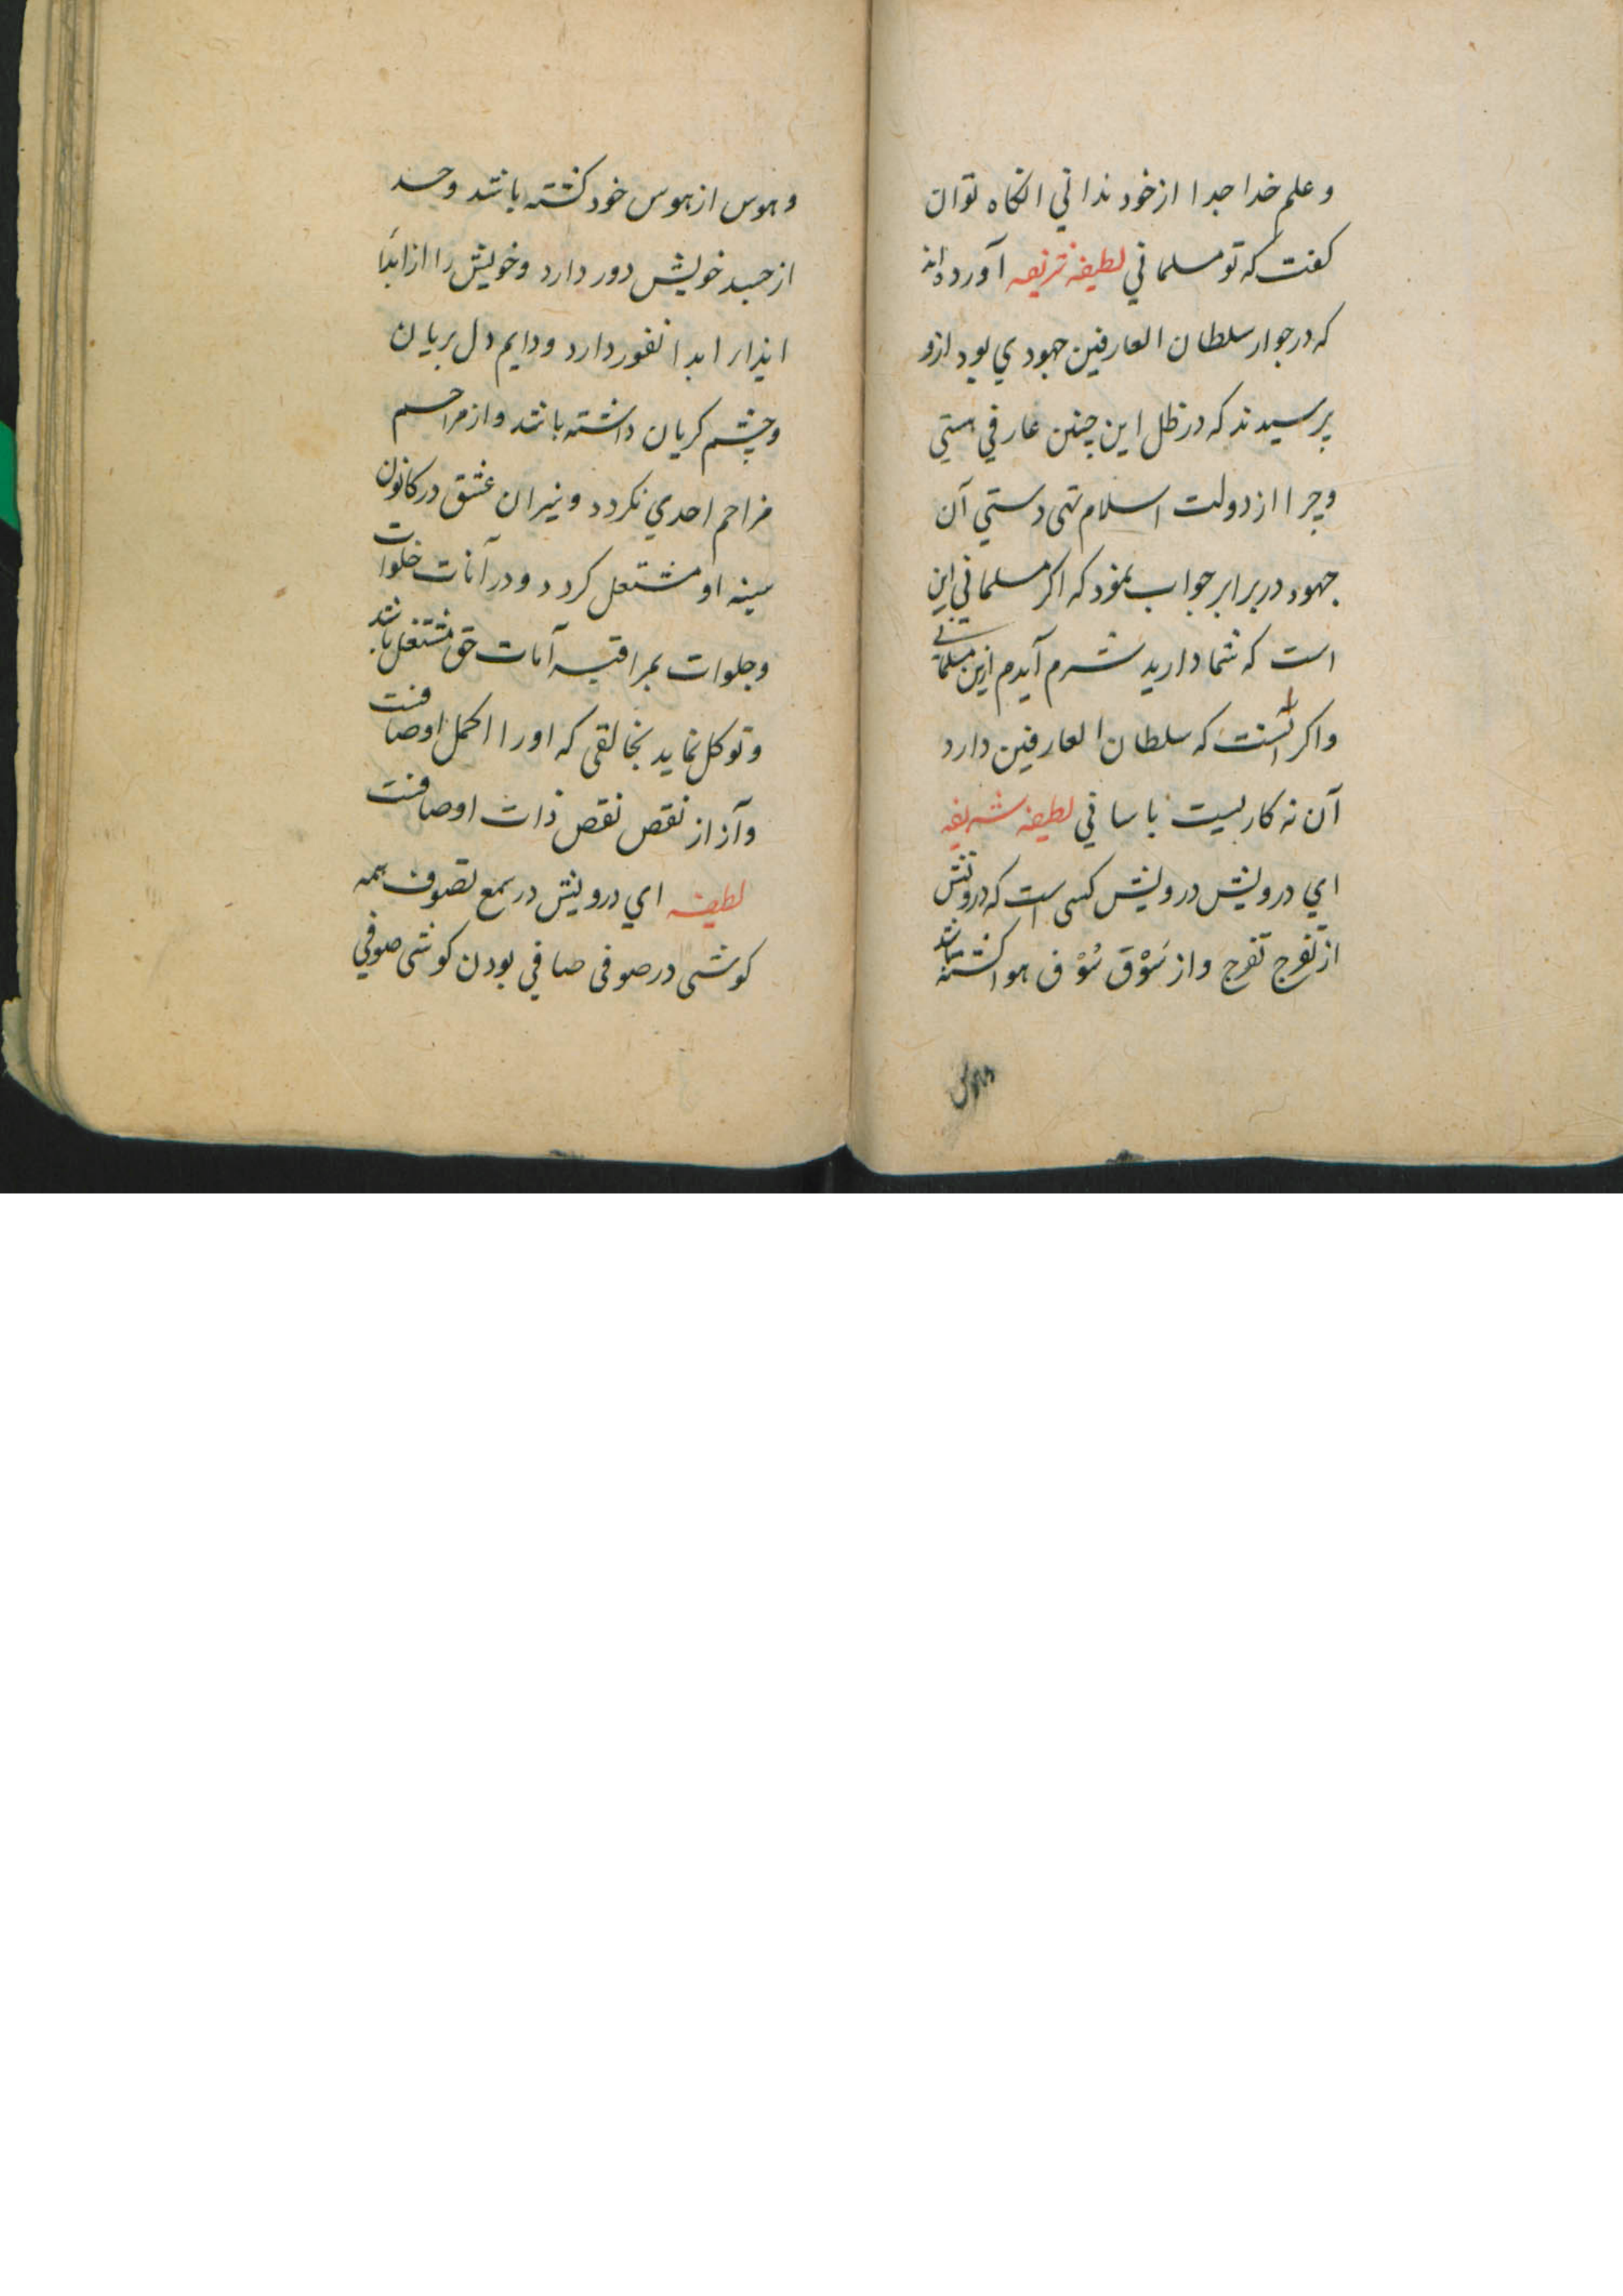 و علم خدا جدا از خود ندانی انکاه توان
کفت که تو مسلمانی لطیفه شریفه آورده اند
که در جوار سلطان العارفین جهودی بود ازو
پرسیدند که در ظل این چنین عارفی هستی
و چرا از دولت اسلام تهی دستی آن
جهود در برابر جواب نمود که اکر مسلمانی این
است که شما دارید شرم آیدم ازین مسلمانی
و اکر آنست که سلطان العارفین دارد
آن نه کاریست باسانی لطیفه شریفه
ای درویش درویش کسی است که درونش
از تفرج تفرج و از سَوْق سُوْق هوا کشته باشد
وهوس
و هوس از هوس خود کشته باشد و حسد
از جسد خویش دور دارد و خویش را از ابدا
ایذار ابدا نفور دارد و دایم دل بریان
و چشم کریان داشته باشد و از مراحم
مزاحم احدی نکردد و نیران عشق در کانون
سینه او مشتعل کردد و در آنات خلوات
و جلوات بمراقبه آیات حق مشتغل باشد
و توکل نماید بخالقی که او را اکمل اوصافست
و آز از نقص نقص ذات اوصافست
لطیفه ای درویش در سمع تصوف همه
کوشی در صوفی صافی بودن کوشی صوفی